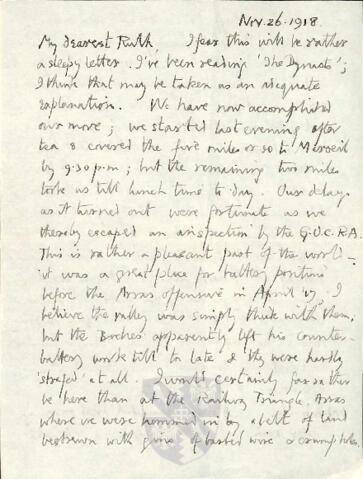 Nov. 26. 1918.
My dearest Ruth, I fear this will be rather
a sleepy letter. I've been reading 'The Dynasts';
I think that may be taken as an adequate
explanation. We have now accomplished
our move; we started last evening after
tea & covered the five miles or so to
by 9.30 p.m; but the remaining two miles
took us till lunch time to day. Our delays
as it turned out were fortunate as we
thereby escaped an inspection by the G.O.C.R.A.
This is rather a pleasant part of the world –
it was a great place for battery positions
before the Arras offensive in April '17. I
believe the valley was simply thick with them,
but the Boches apparently left his counter-
battery work till to late & they were hardly
'strafed' at all. I would certainly far rather
be here than at the Railway Triangle, Arras
where we were hemmed in by a belt of land
bestrewn with coils of barbed wire & crumpholes.